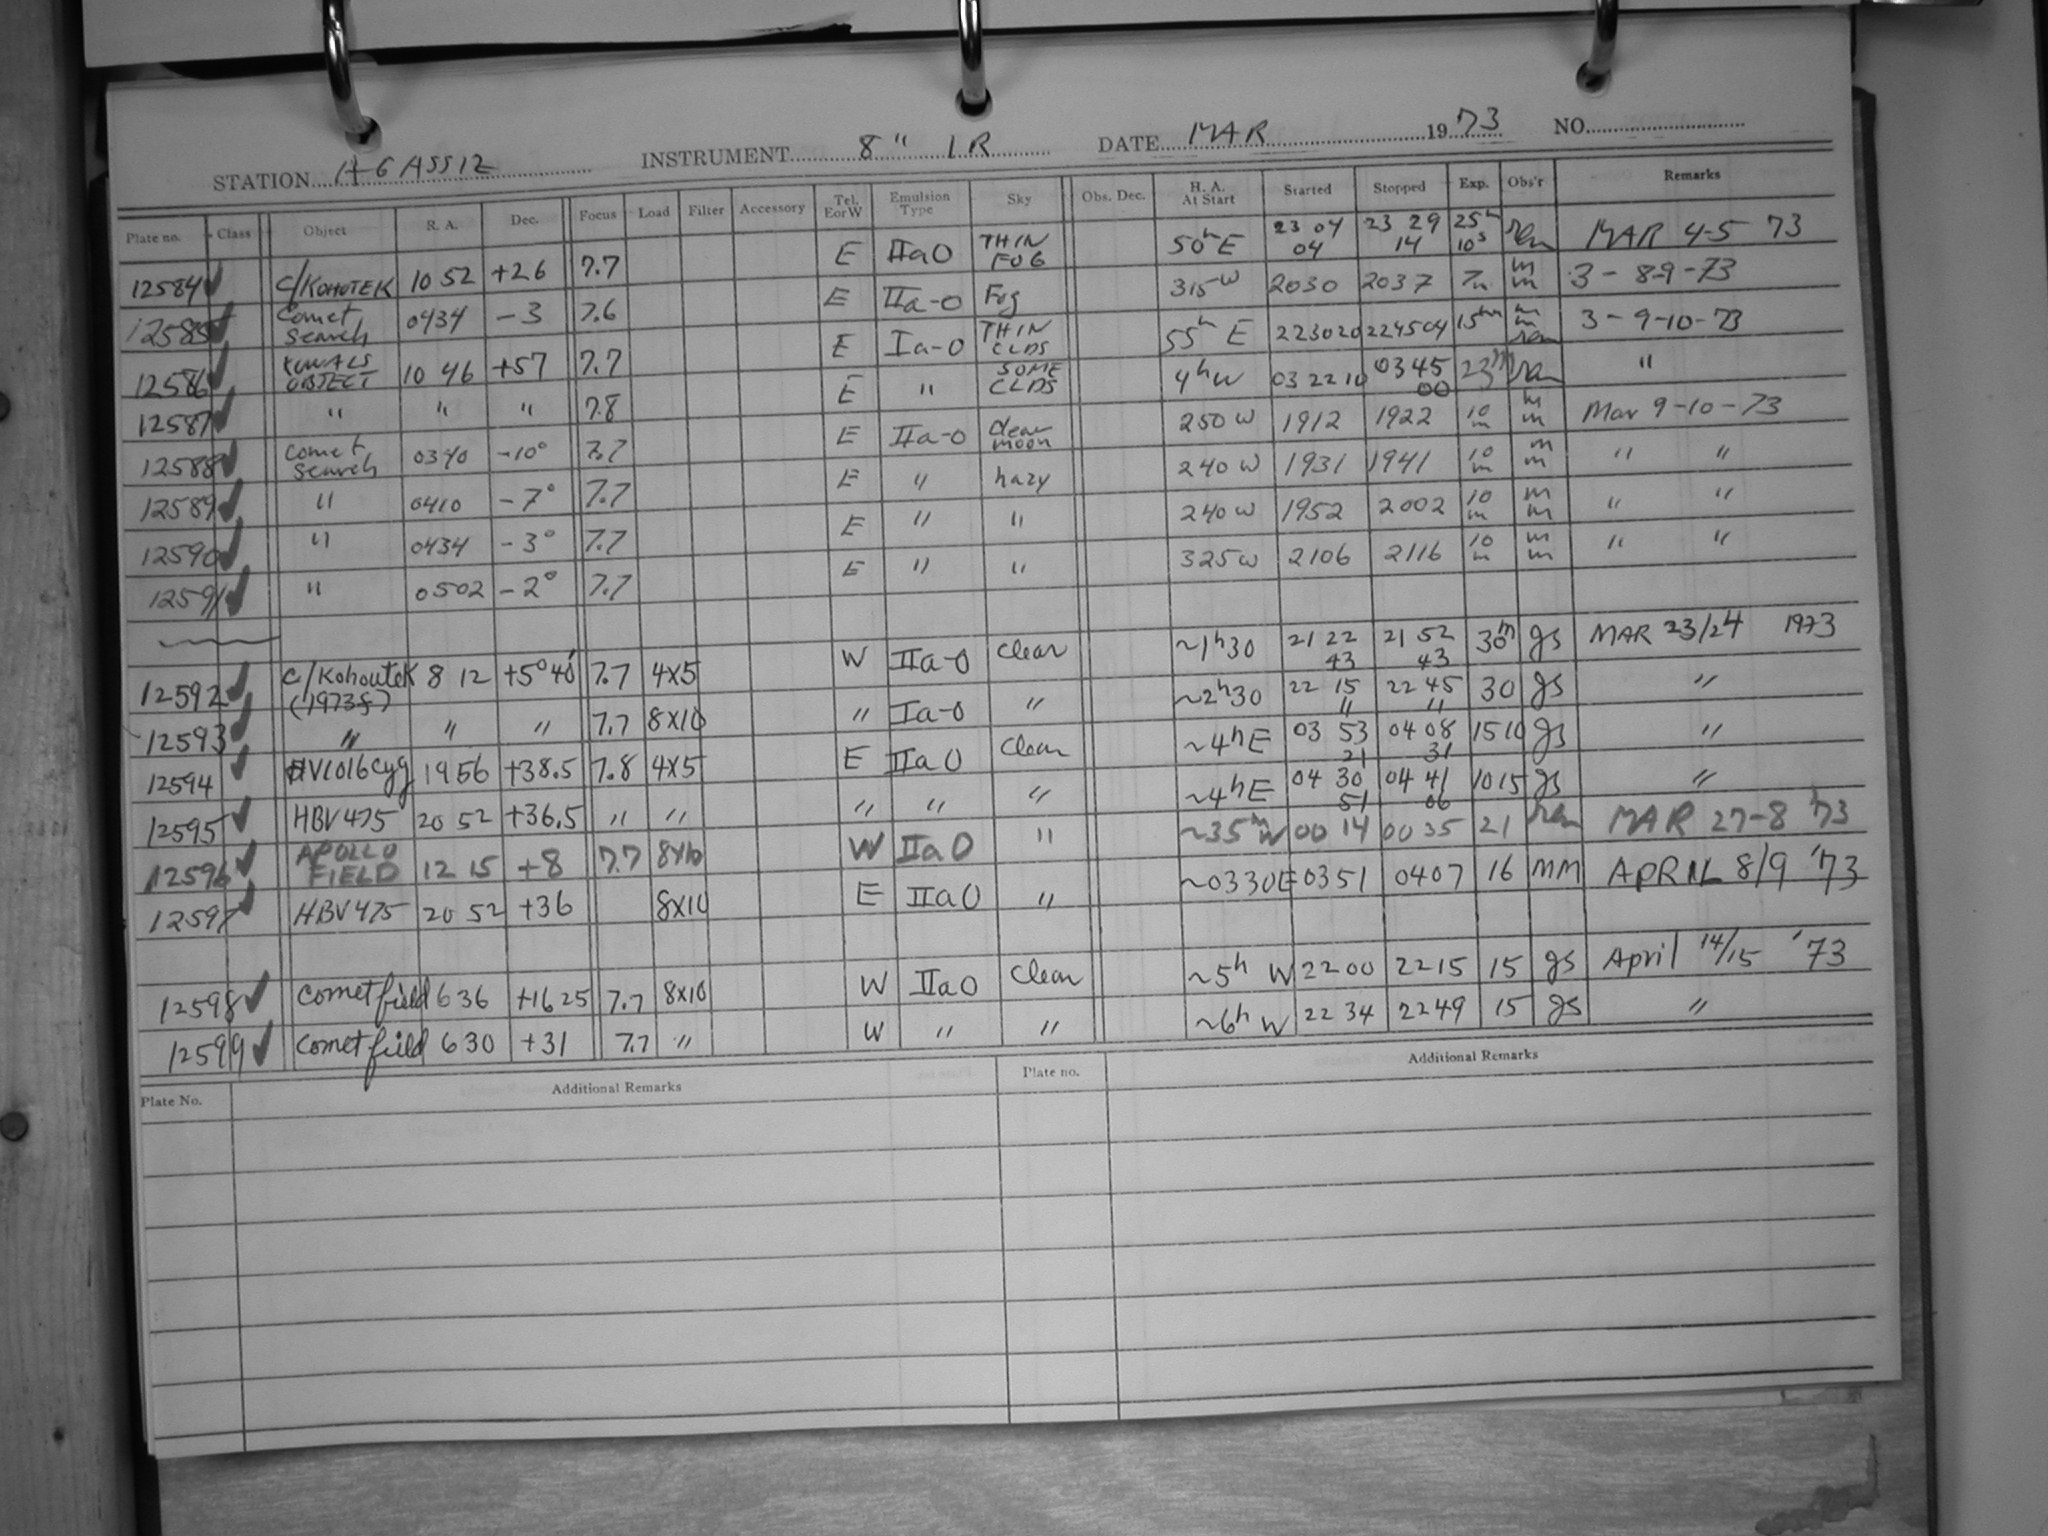 STATION AGASSIZ INSTRUMENT 8" IR DATE MAR 1973 NO.
Plate no. Class Object R. A. Dec. Focus Load Filter Accessory Tel. E or W Emulsion Type Sky Obs. Dec. H. A. At Start Started Stopped Exp. Obs'r Remarks
12584 ✓ C/KOHOTEK 10 52 +26 7.7 E IIaO THIN FOG 50ᵐE 23 04 04 23 29 14 25ᵐ 10ˢ MAR 4-5 73
12585 ✓ Comet Search 0434 -3 7.6 E IIa-O Fog 315W 2030 2037 7m mm 3-8-9-73
12586 ✓ KOWALS OBJECT 10 46 +57 7.7 E Ia-O THIN CLDS 55ᵐ E 223020 224504 15ᵐ mm 3-9-10-73
12587 ✓ " " " 7.8 E " SOME CLDS 4ʰW 03 22 10 0345 00 23ᵐ "
12588 ✓ Comet Search 0340 -10° 7.7 E IIa-O clear moon 250W 1912 1922 10m mm Mar 9-10-73
12589 ✓ " 0410 -7° 7.7 E " hazy 240W 1931 1941 10m mm " "
12590 ✓ " 0434 -3° 7.7 E " " 240W 1952 2002 10m mm " "
12591 ✓ " 0502 -2° 7.7 E " " 325W 2106 2116 10m mm " "
12592 ✓ C/Kohoutek (1973f) 8 12 +5°40' 7.7 4x5 W IIa-O clear ~1ʰ30 21 22 43 21 52 43 30ᵐ gs MAR 23/24 1973
12593 ✓ " " " 7.7 8x10 " Ia-O " ~2ʰ30 22 15 " 22 45 " 30 gs "
12594 ✓ HV1016Cyg 19 56 +38.5 7.8 4x5 E IIaO Clear ~4ʰE 03 53 21 04 08 31 15 10 gs "
12595 ✓ HBV475 20 52 +36.5 " " " " " ~4ʰE 04 30 51 04 41 06 10 15 gs "
12596 ✓ APOLLO FIELD 12 15 +8 7.7 8x10 W IIaO " ~35ᵐW 00 14 00 35 21 MAR 27-8 '73
12597 ✓ HBV475 20 52 +36 8x10 E IIaO " ~0330E 0351 0407 16 MM APRIL 8/9 '73
12598 ✓ Comet field 6 36 +16 25 7.7 8x10 W IIaO Clear ~5ʰ W 2200 2215 15 gs April 14/15 '73
12599 ✓ Comet field 6 30 +31 7.7 " W " " ~6ʰ W 22 34 2249 15 gs "
Plate No. Additional Remarks Plate no. Additional Remarks